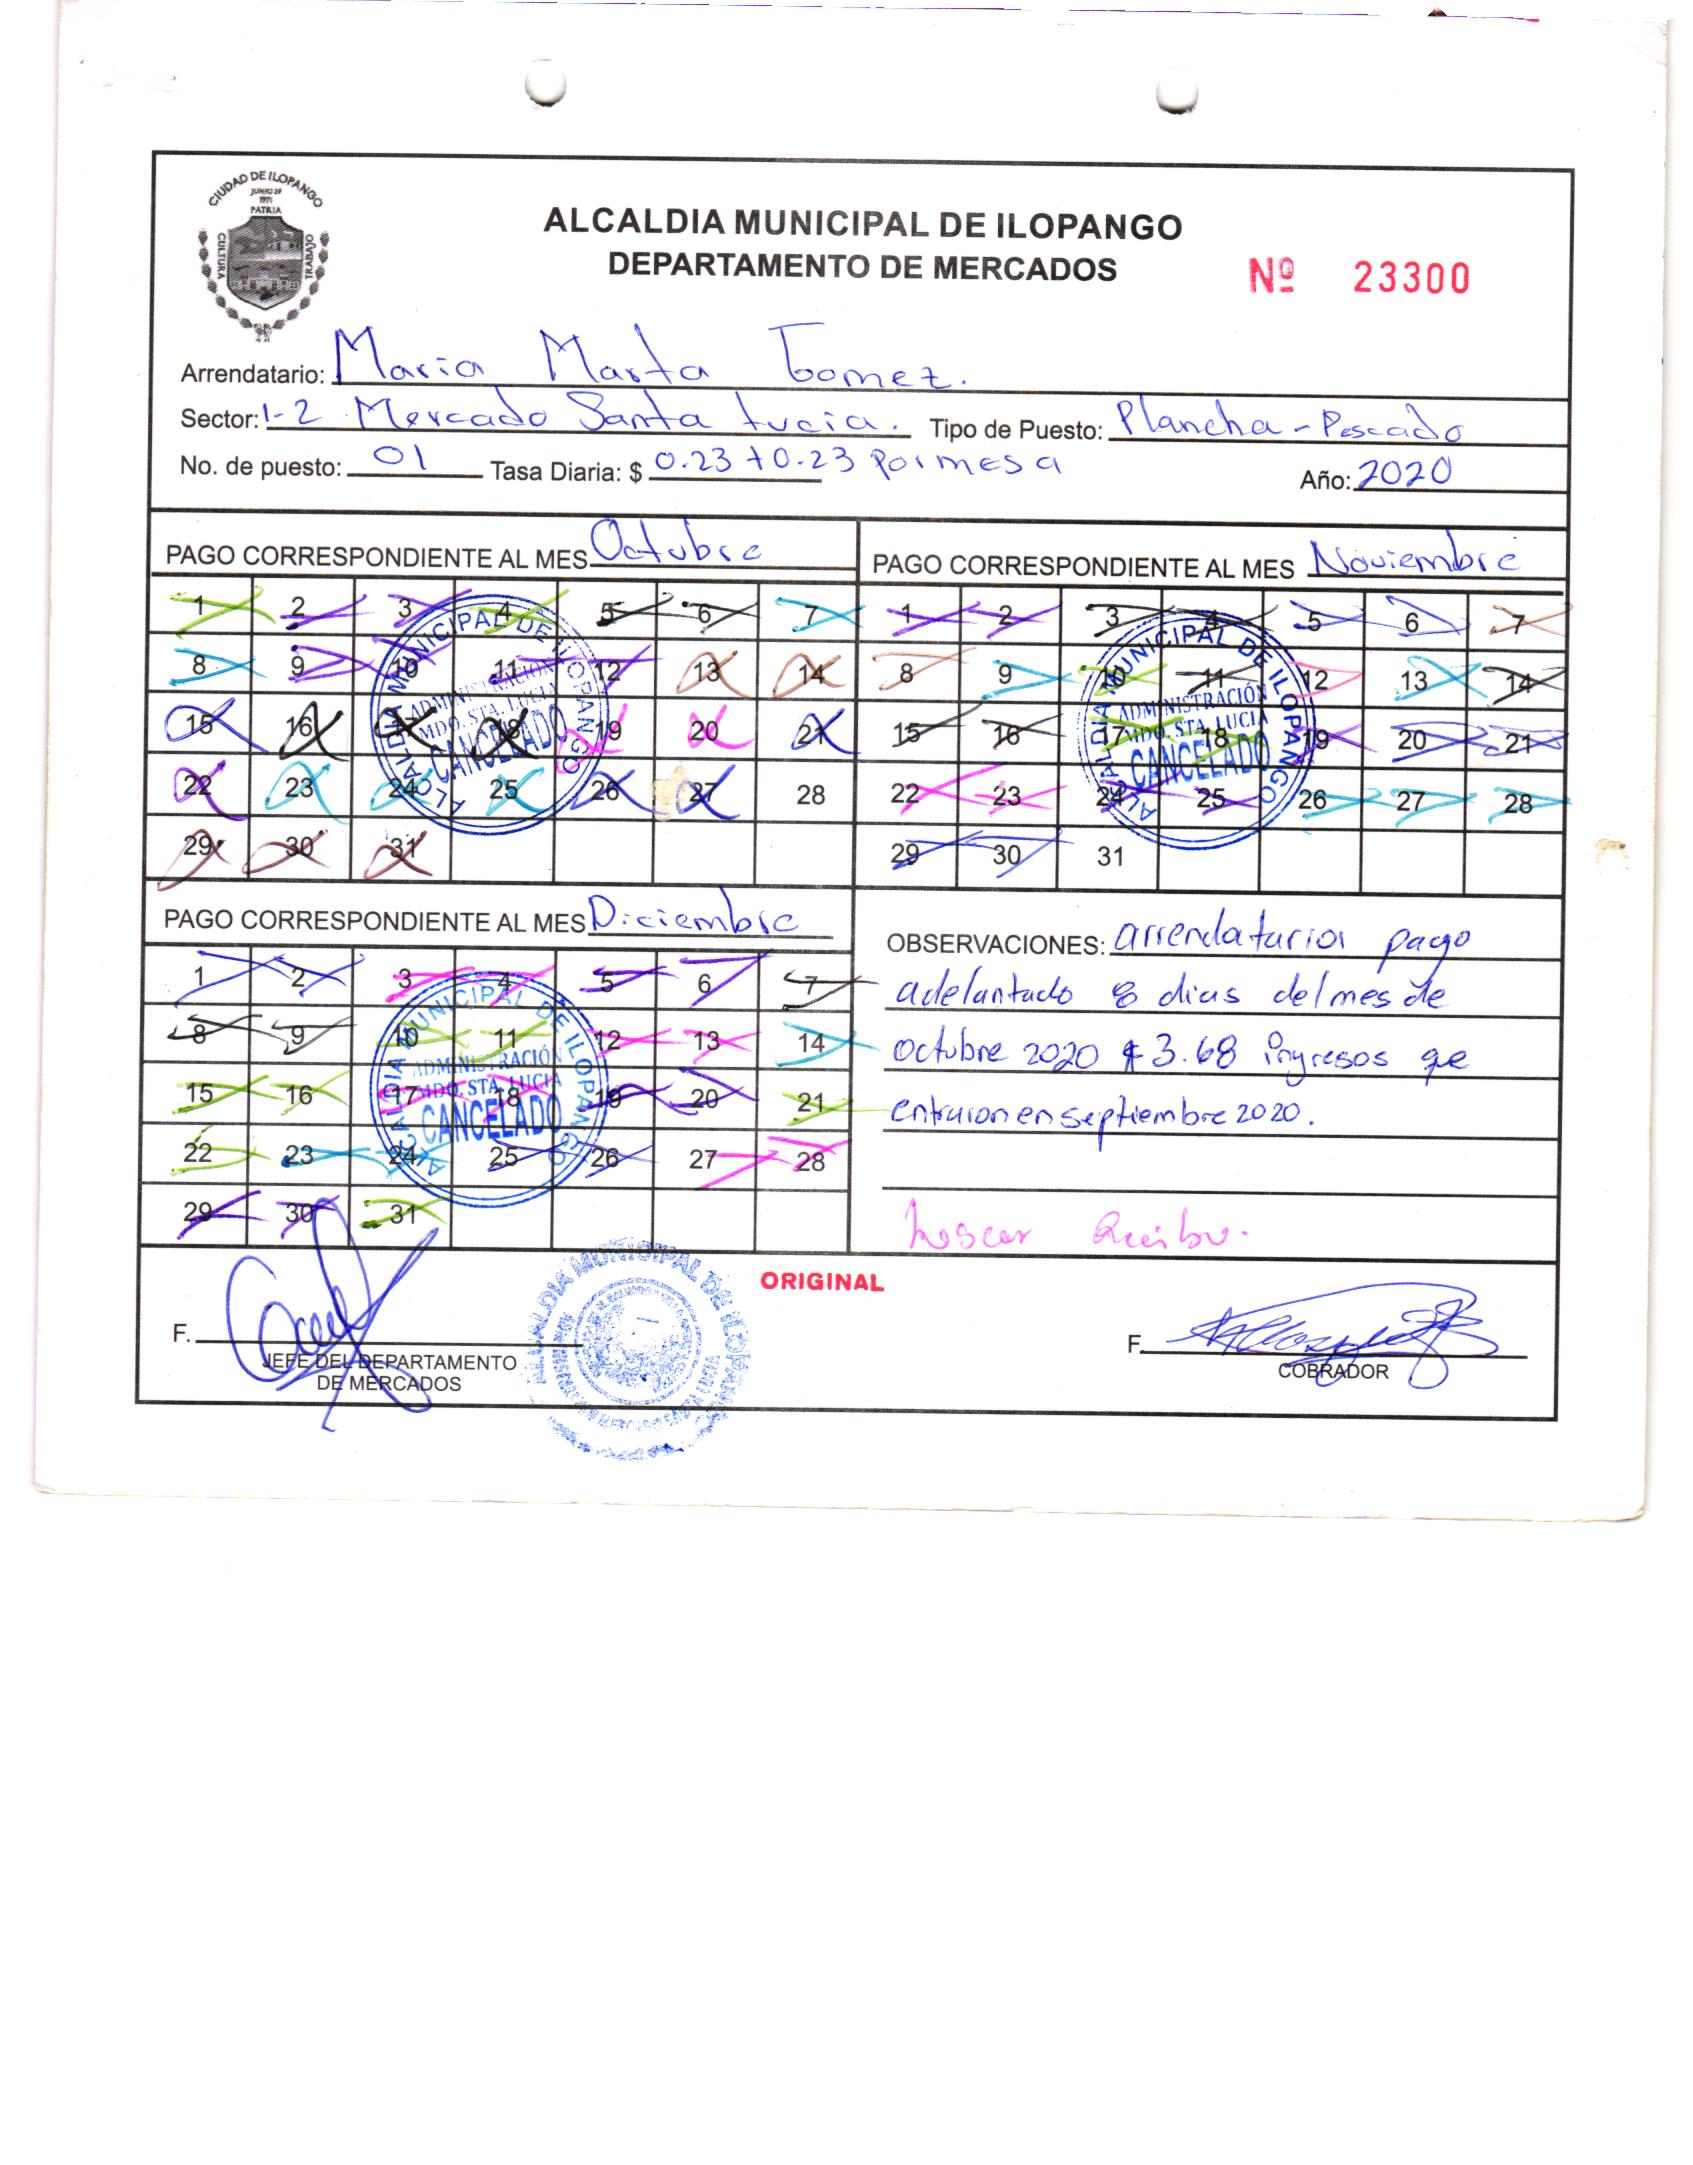 CIUDAD DE ILOPANGO
JUNIO 29
1971
PATRIA
CULTURA
TRABAJO
ALCALDIA MUNICIPAL DE ILOPANGO
DEPARTAMENTO DE MERCADOS
Nº 23300
Arrendatario: Maria Marta Gomez.
Sector: 1-2 Mercado Santa Lucia. Tipo de Puesto: Plancha - Pescado
No. de puesto: 01 Tasa Diaria: $ 0.23 + 0.23 por mesa Año: 2020
PAGO CORRESPONDIENTE AL MES Octubre
1 2 3 4 5 6 7
8 9 10 11 12 13 14
15 16 17 18 19 20 21
22 23 24 25 26 27 28
29 30 31
ALCALDIA MUNICIPAL DE ILOPANGO
ADMINISTRACIÓN
MDO. STA. LUCIA
CANCELADO
PAGO CORRESPONDIENTE AL MES Noviembre
1 2 3 4 5 6 7
8 9 10 11 12 13 14
15 16 17 18 19 20 21
22 23 24 25 26 27 28
29 30 31
ALCALDIA MUNICIPAL DE ILOPANGO
ADMINISTRACIÓN
MDO. STA. LUCIA
CANCELADO
PAGO CORRESPONDIENTE AL MES Diciembre
1 2 3 4 5 6 7
8 9 10 11 12 13 14
15 16 17 18 19 20 21
22 23 24 25 26 27 28
29 30 31
ALCALDIA MUNICIPAL DE ILOPANGO
ADMINISTRACIÓN
MDO. STA. LUCIA
CANCELADO
OBSERVACIONES: arrendatarios pago
adelantado 8 dias del mes de
octubre 2020 $ 3.68 ingresos qe
entraron en septiembre 2020.
ORIGINAL
F.
JEFE DEL DEPARTAMENTO
DE MERCADOS
ALCALDIA MUNICIPAL DE ILOPANGO
F.
COBRADOR